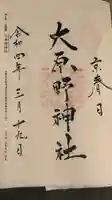 京春日
大原野神社
令和四年三月十九日